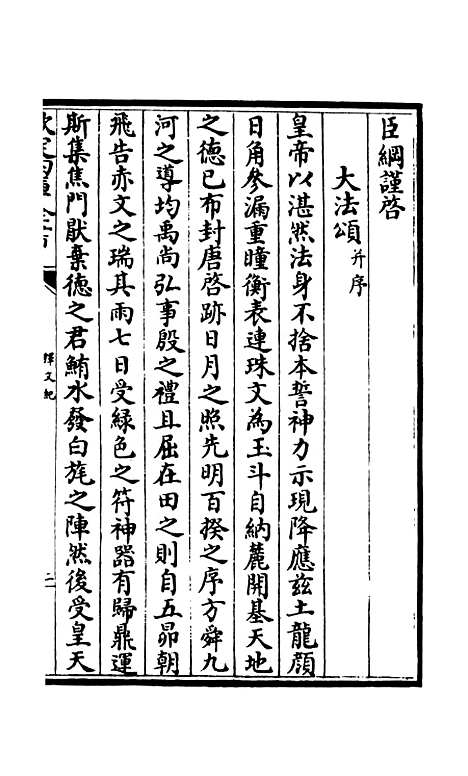 臣綱謹啓
大法頌并序
皇帝以湛然法身不捨本誓神力示現降應兹土龍顔
日角參漏重瞳衡表連珠文為玉斗自納麓開基天地
之德已布封唐啓跡日月之照先明百揆之序方舜九
河之導均禹尚弘事殷之禮且屈在田之則自五昴朝
飛告赤文之瑞其雨七日受緑色之符神器有歸鼎運
斯集焦門厭棄德之君鮪水發白旄之陣然後受皇天
欽定四庫全書
釋文紀
二